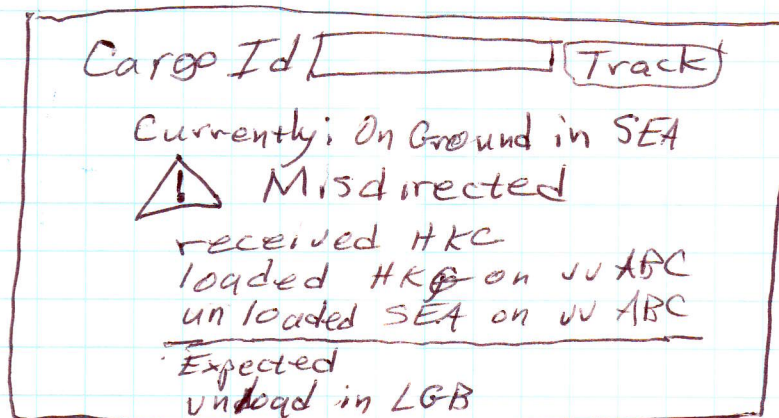 Cargo Id Track
Currently: On Ground in SEA
! Misdirected
received HKC
loaded HKG on vv ABC
unloaded SEA on vv ABC
Expected
unload in LGB